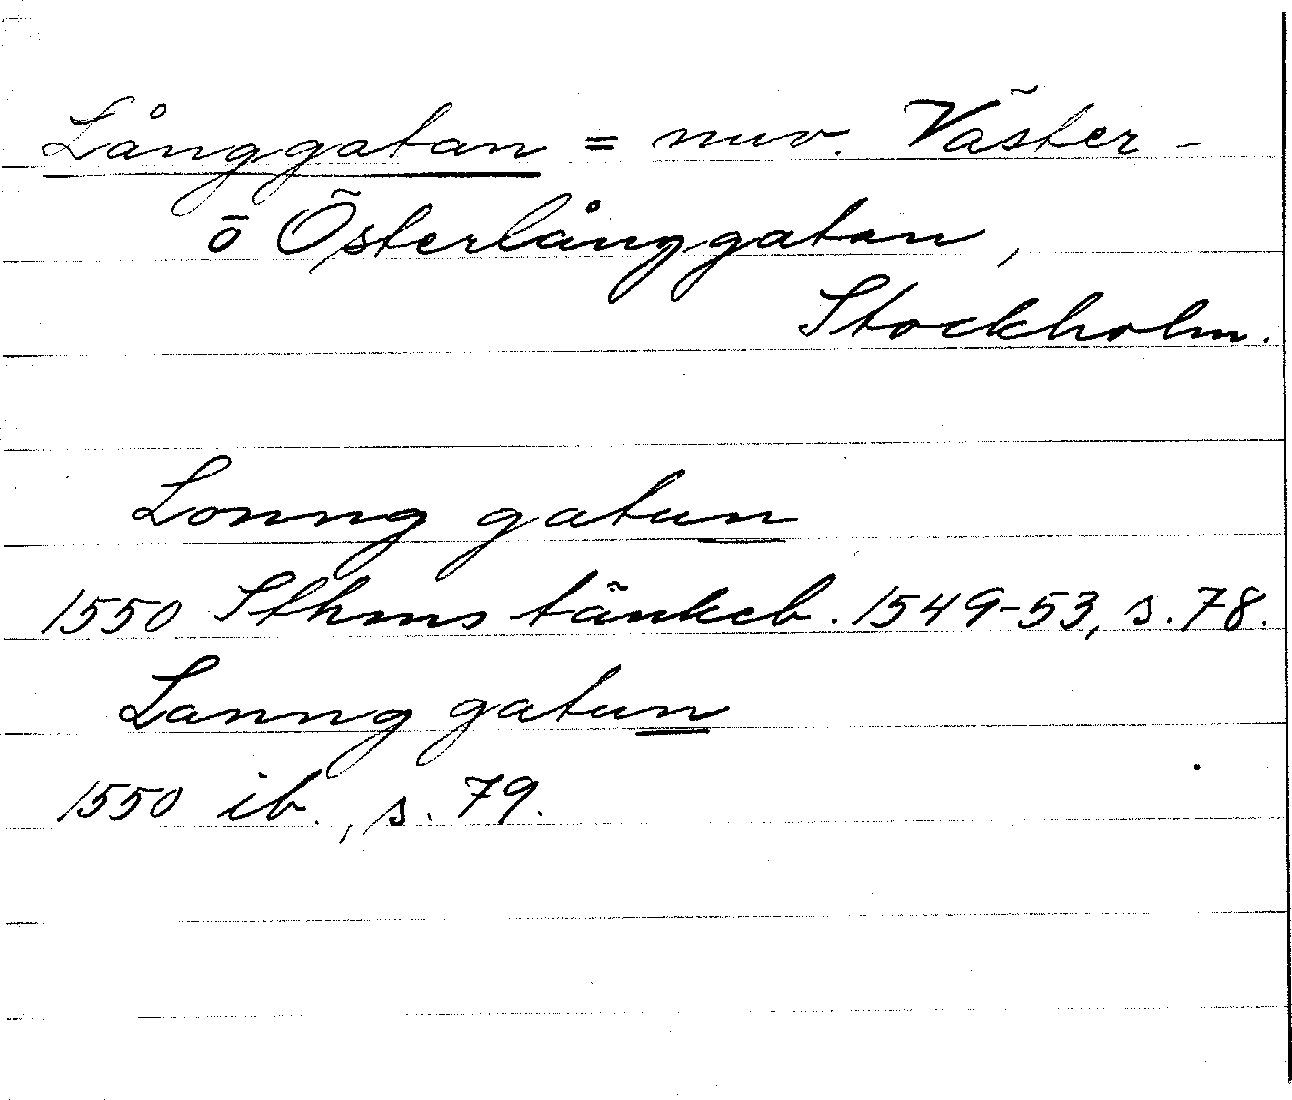 Långgatan = nuv. Väster-
o Österlånggatan,
Stockholm.
Lonng gatun
1550 Sthms tänkeb. 1549-53, s. 78.
Lanng gatun
1550 ib., s. 79.